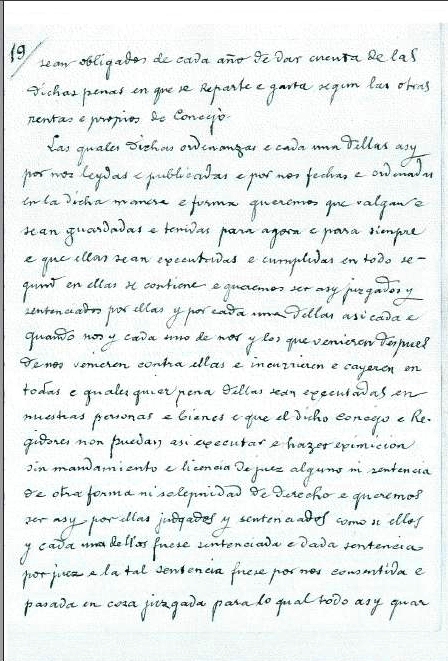 19
sean obligados de cada año de dar cuenta de las
dichas penas en que se reparte e gasta segun las otras
rentas e propios do Concejo.
Las quales dichas ordenanzas e cada una dellas asy
por nos leydas e publicadas e por nos fechas e ordenadas
en la dicha manera e forma queremos que valgan e
sean guardadas e tenidas para agora e para siempre
e que ellas sean executadas e cumplidas en todo se-
gund en ellas se contiene e queremos ser asy juzgados y
sentenciados por ellas y por cada una dellas asi cada e
quando nos y cada uno de nos y los que venieren despues
de nos venieren contra ellas e incurrieren e cayeren en
todas e quales quier pena dellas sean executadas en
nuestras personas e bienes e que el dicho concejo e Re-
gidores non puedan asi executar e hazer eximicion
sin mandamiento e licencia de juez alguno ni sentencia
de otra forma ni solepnidad de derecho e queremos
ser asy por ellas judgados y sentenciados como si ellos
y cada una dellos fuese sentenciada e dada sentencia
por juez e la tal sentencia fuese por nos consentida e
pasada en coza juzgada para lo qual todo asy guar